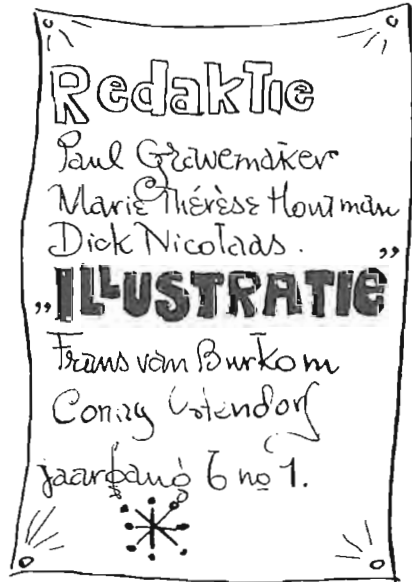 Redaktie
Paul Grawemaker
Marie Thérèse Houtman
Dick Nicolaas.
„ILLUSTRATIE”
Frans van Burkom
Conny
jaargang 6 no 1.